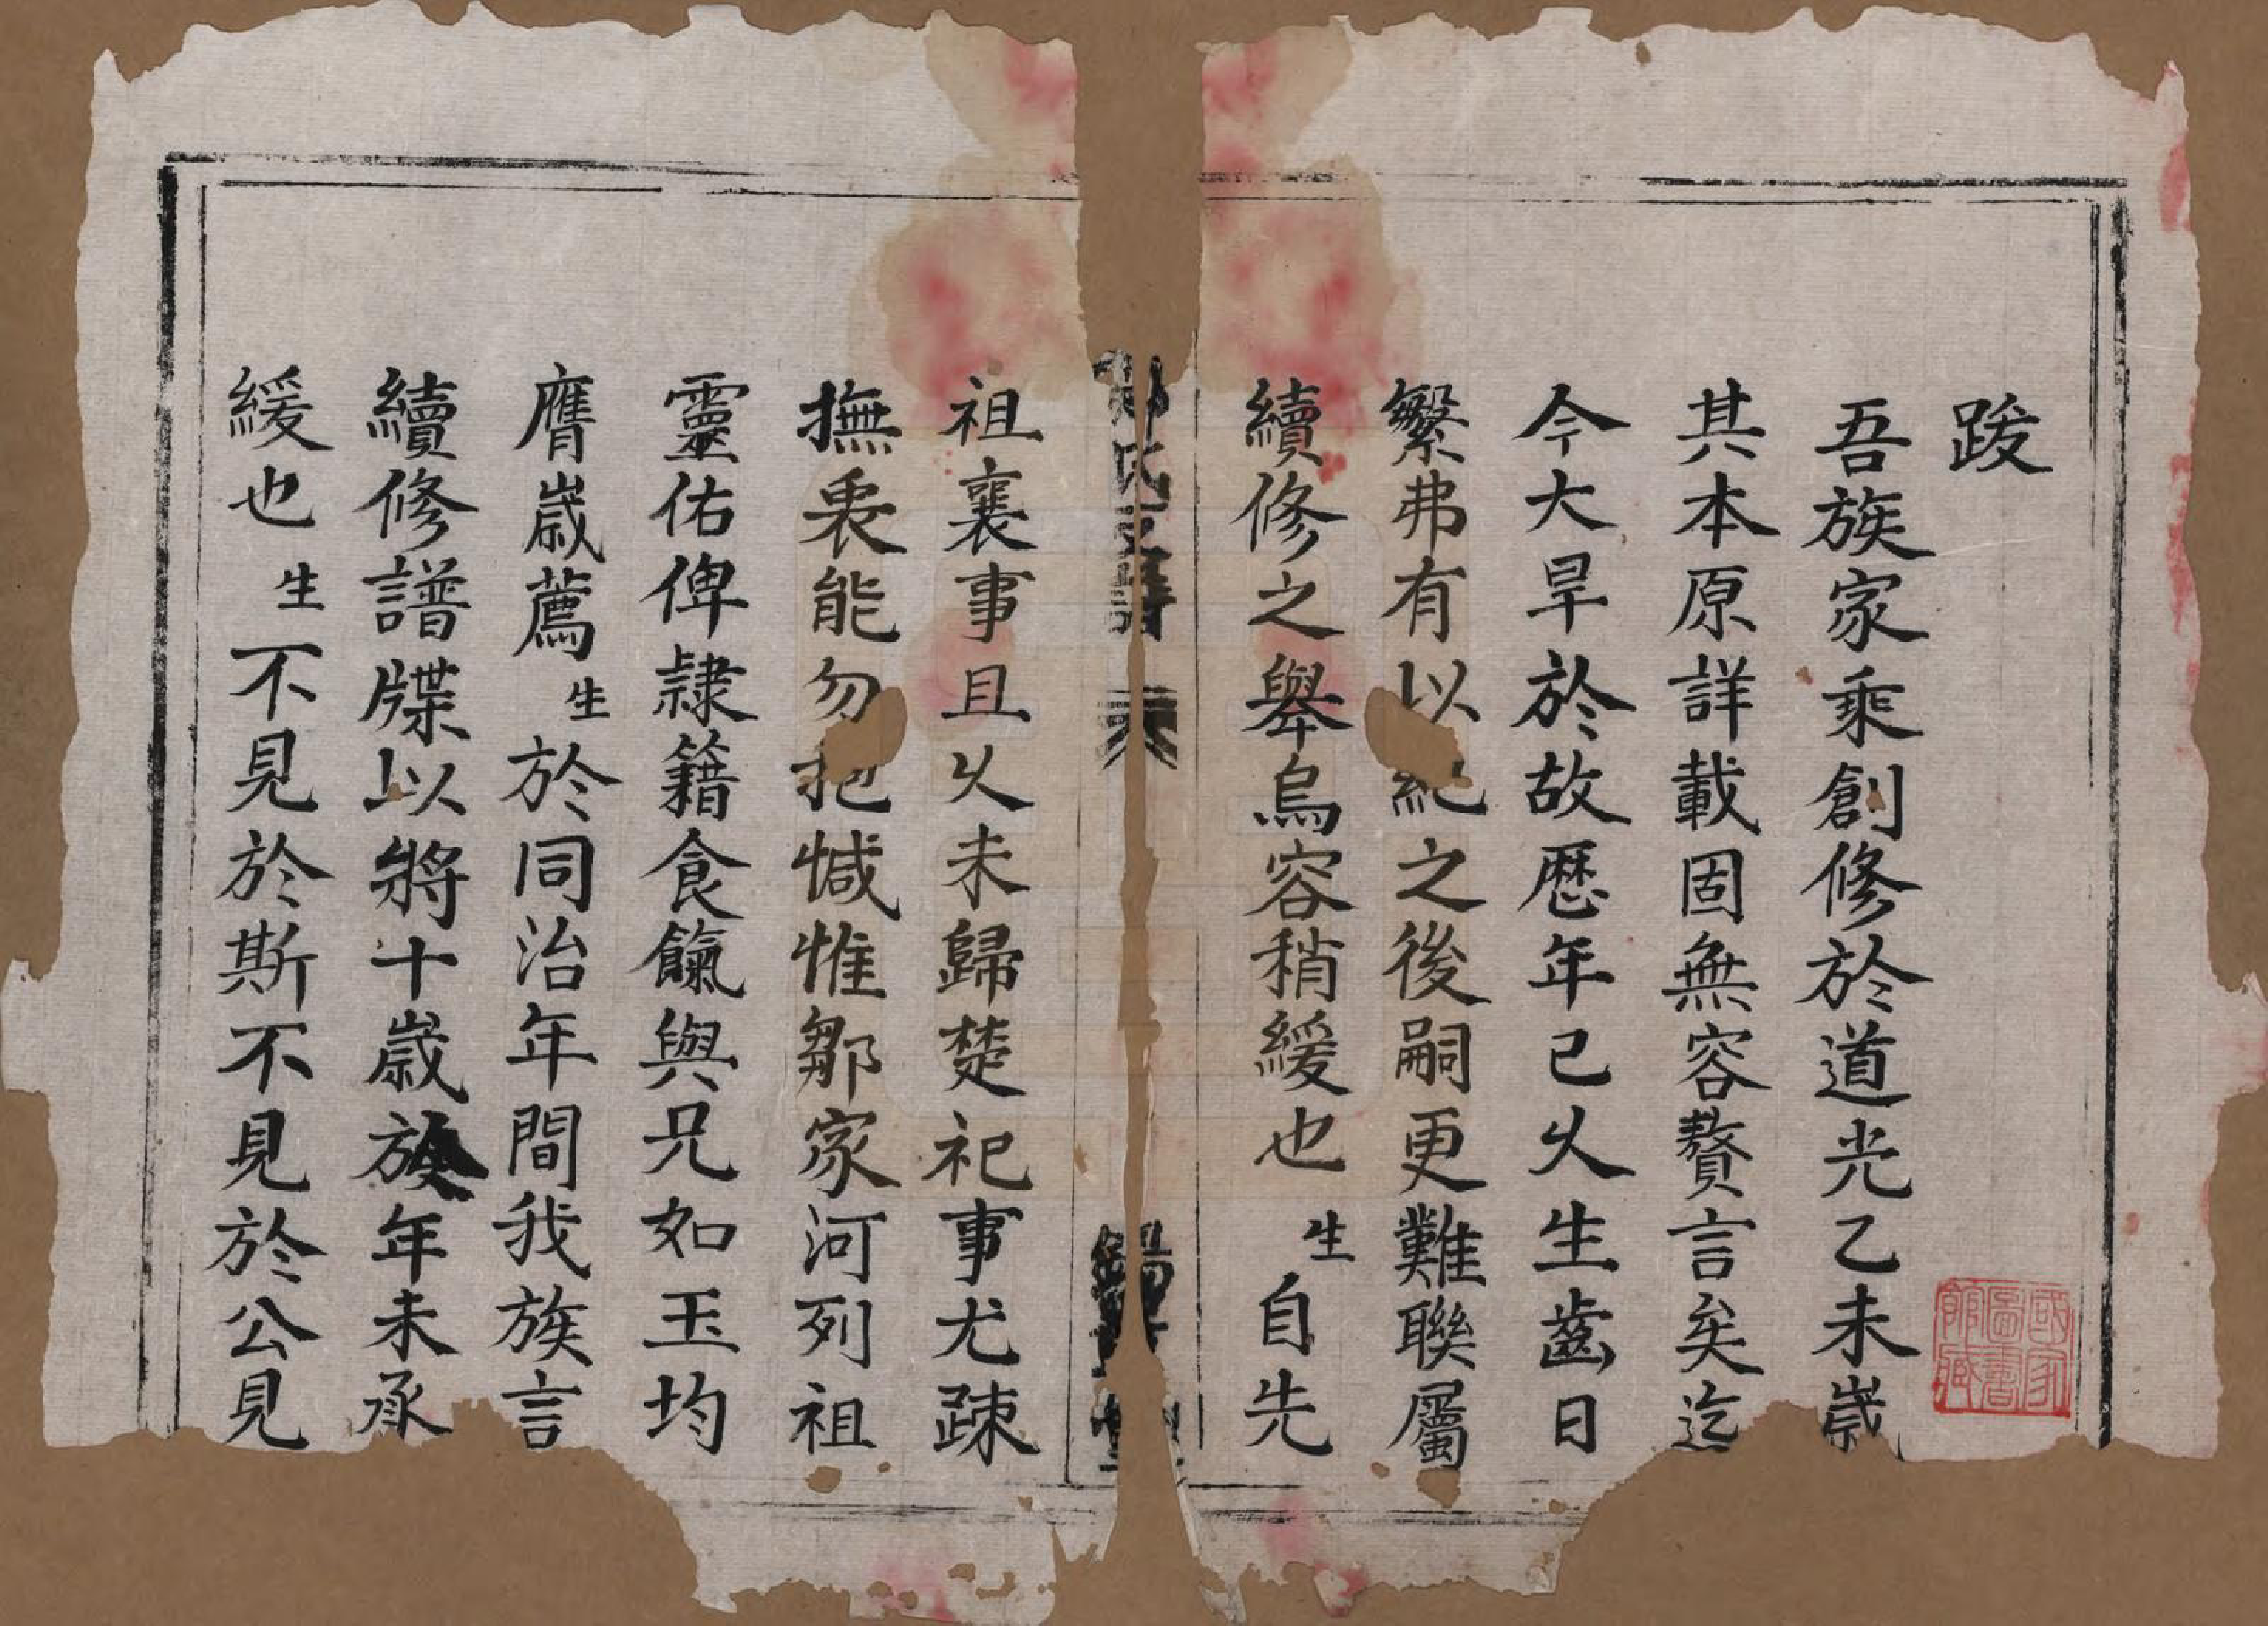 跋
吾族家乘創修於道光乙未歲
其本原詳載固無容贅言矣迄
今大旱於故歷年已久生齒日
繁弗有以紀之後嗣更難聯屬
續修之舉烏容稍緩也生自先
氏支譜 跋
祖襄事且久未歸楚祀事尤疎
撫衷能勿抱慽惟鄒家河列祖
靈佑俾隸籍食餼與兄如玉均
膺歲薦生於同治年間我族言
續修譜牒以將十歲族年未承
緩也生不見於斯不見於公見
國家圖書館藏